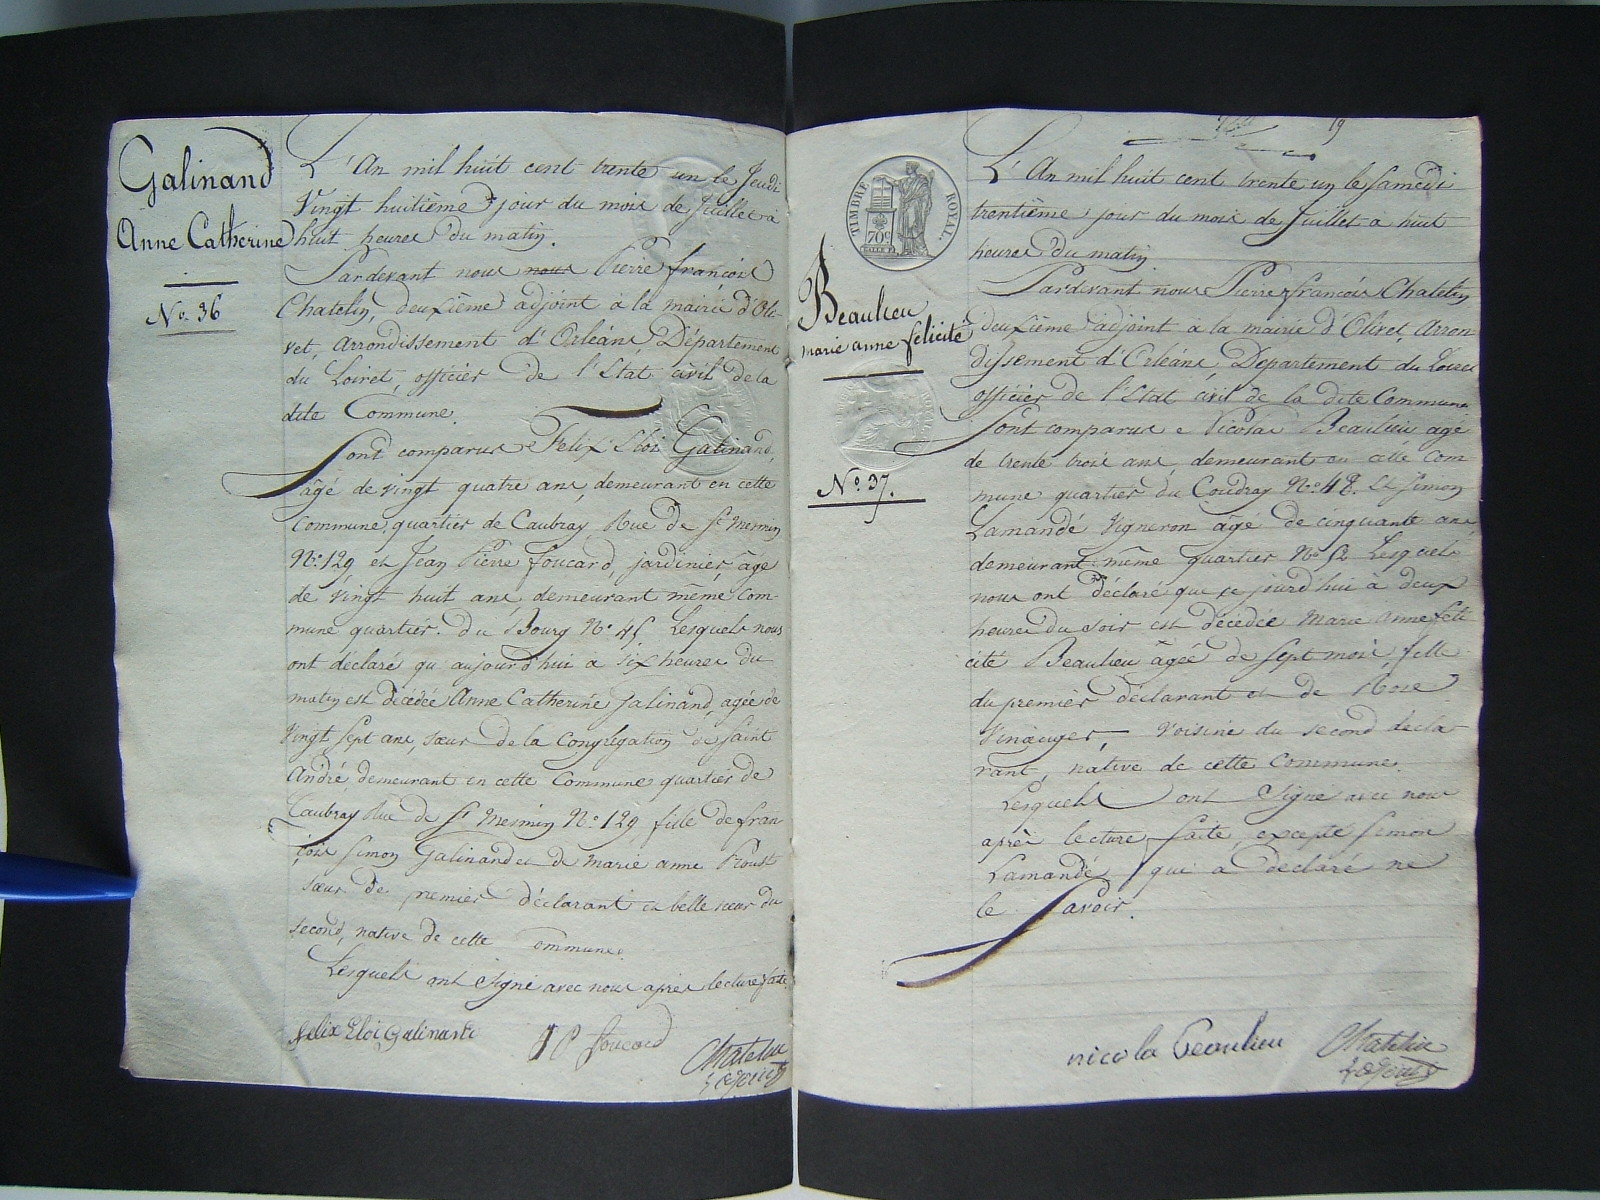 Galinand
Anne Catherine
N.º 36
L'An mil huit cent trente un le Jeudi
Vingt huitième jour du mois de Juillet à
huit heures du matin.
Pardevant nous nous Pierre françois
Chatelin, deuxième adjoint à la mairie d'Oli-
vet, arrondissement d'Orléans Département
du Loiret, officier de l'Etat civil de la
dite Commune.
Sont comparus Felix Eloi Galinand,
âgé de vingt quatre ans, demeurant en cette
Commune, quartier de Caubray Rue de St. Mesmin
N.º 129 et Jean Pierre foucard, jardinier, âgé
de vingt huit ans, demeurant même com-
mune quartier du Bourg N.º 45 Lesquels nous
ont déclaré qu'aujourd'hui à six heures du
matin est décédée Anne Catherine Galinand, agée de
vingt sept ans, sœur de la Congrégation de Saint
André, demeurant en cette Commune quartier de
Caubray Rue de St Mesmin N.º 129 fille de fran
çois Simon Galinand et de marie anne Proust
sœur de premier déclarant et belle sœur du
second, native de cette ommune.
Lesquels ont signé avec nous après lecture faite
felix Eloi Galinand
JP foucard
Chatelin
adjoint
19
TIMBRE ROYAL
70 c
Beaulieu
marie anne félicité
N.º 37.
L'An mil huit cent trente un le Samedi
trentième jour du mois de Juillet a huit
heures du matin
Pardevant nous Pierre françois Chatelin
deuxième adjoint à la mairie d'Olivet, Arron
dissement d'Orléans Departement du Loiret
officier de l'Etat civil de la dite Commune
Sont comparus Nicolas Beaulieu agé
de trente trois ans, demeurant en cette com
mune quartier du Coudray N.º 48. Et Simon
Lamandé Vigneron agé de cinquante ans
demeurant même quartier N.º 52 Lesquels
nous ont déclaré que ce jourd'hui à deux
heures du soir est décédée Marie Anne féli
cité Beaulieu âgée de sept mois, fille
du premier déclarant et de Rose
Vinauger, Voisine du second décla
rant, native de cette Commune.
Lesquels ont Signé avec nous
après lecture faite, excepté Simon
Lamandé qui a déclaré ne
le Savoir.
nicola beaulieu
Chatelin
adjoint